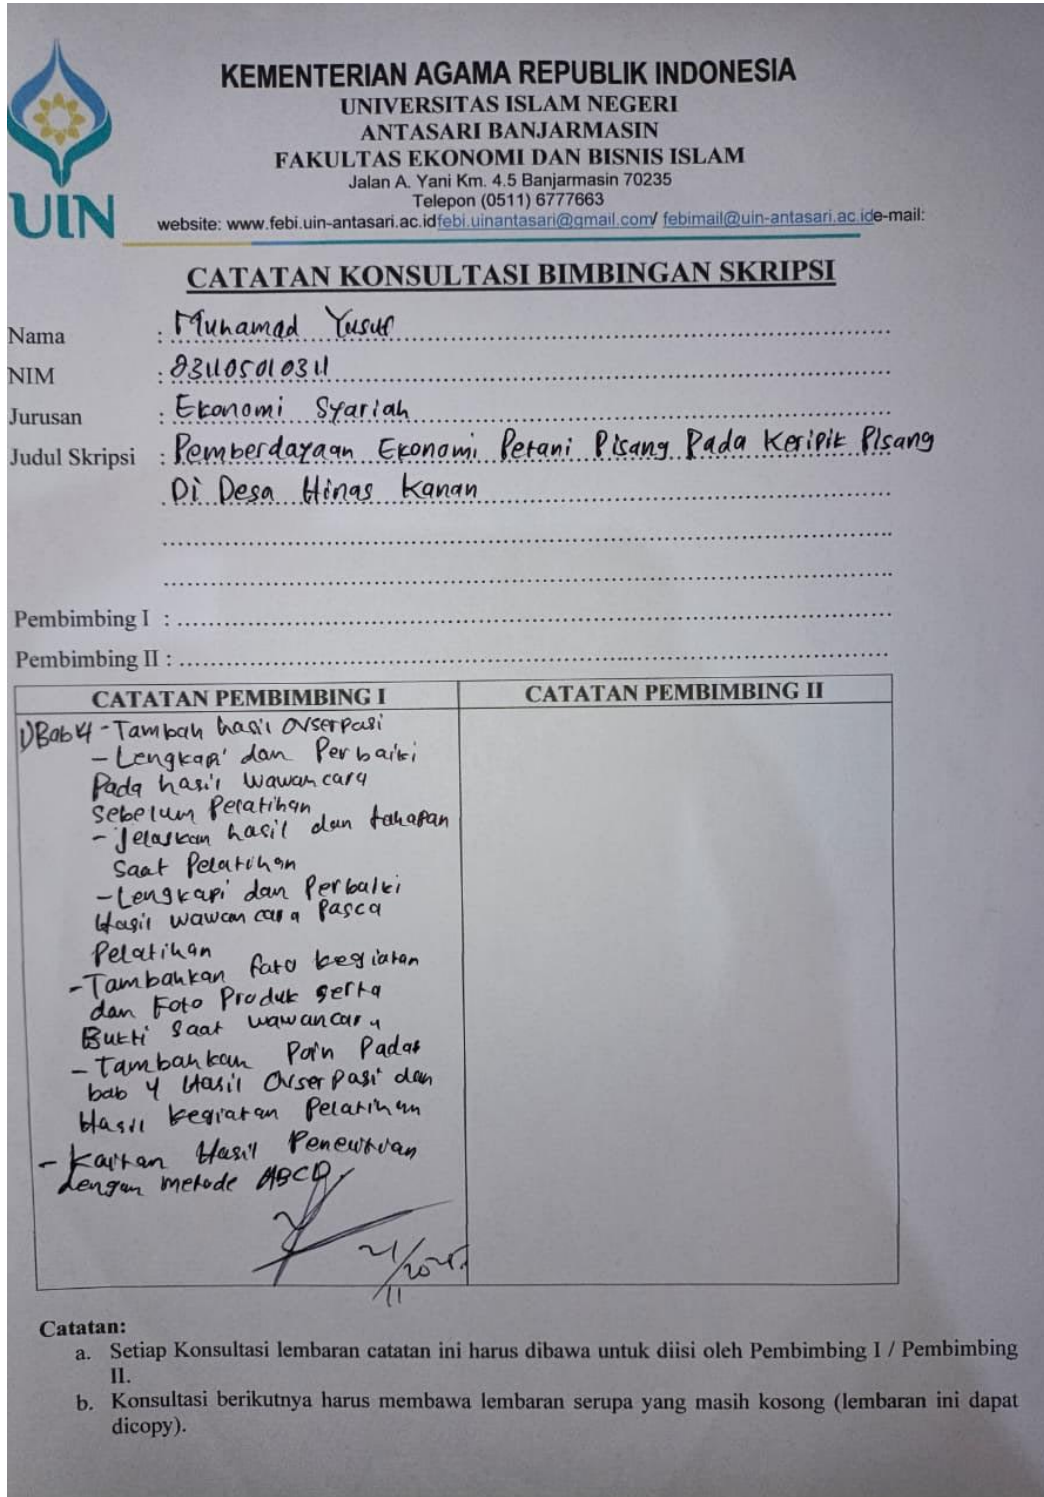 KEMENTERIAN AGAMA REPUBLIK INDONESIA
UNIVERSITAS ISLAM NEGERI
ANTASARI BANJARMASIN
FAKULTAS EKONOMI DAN BISNIS ISLAM
Jalan A. Yani Km. 4.5 Banjarmasin 70235
Telepon (0511) 6777663
website: www.febi.uin-antasari.ac.idfebi.uinantasari@gmail.com/ febimail@uin-antasari.ac.ide-mail:
UIN
CATATAN KONSULTASI BIMBINGAN SKRIPSI
Nama : Muhamad Yusuf
NIM :
Jurusan : Ekonomi Syariah
Judul Skripsi : Pemberdayaan Ekonomi Petani Pisang Pada Keripik Pisang
Di Desa Hinas Kanan
Pembimbing I :
Pembimbing II :
CATATAN PEMBIMBING I CATATAN PEMBIMBING II
Bab 4 - Tambah hasil Ovserpasi
- Lengkapi dan Perbaiki
Pada hasil wawancara
Sebelum Pelatihan
- Jelaskan hasil dan tahapan
Saat Pelatihan
- Lengkapi dan Perbaiki
Hasil wawancara Pasca
Pelatihan
- Tambahkan Foto kegiatan
dan Foto Produk serta
Bukti Saat wawancara
- Tambahkan Poin Pada
bab 4 Hasil Ovserpasi dan
Hasil kegiatan Pelatihan
- Kaitan Hasil
dengan metode ABCD
21/11/2025
Catatan:
a. Setiap Konsultasi lembaran catatan ini harus dibawa untuk diisi oleh Pembimbing I / Pembimbing
II.
b. Konsultasi berikutnya harus membawa lembaran serupa yang masih kosong (lembaran ini dapat
dicopy).